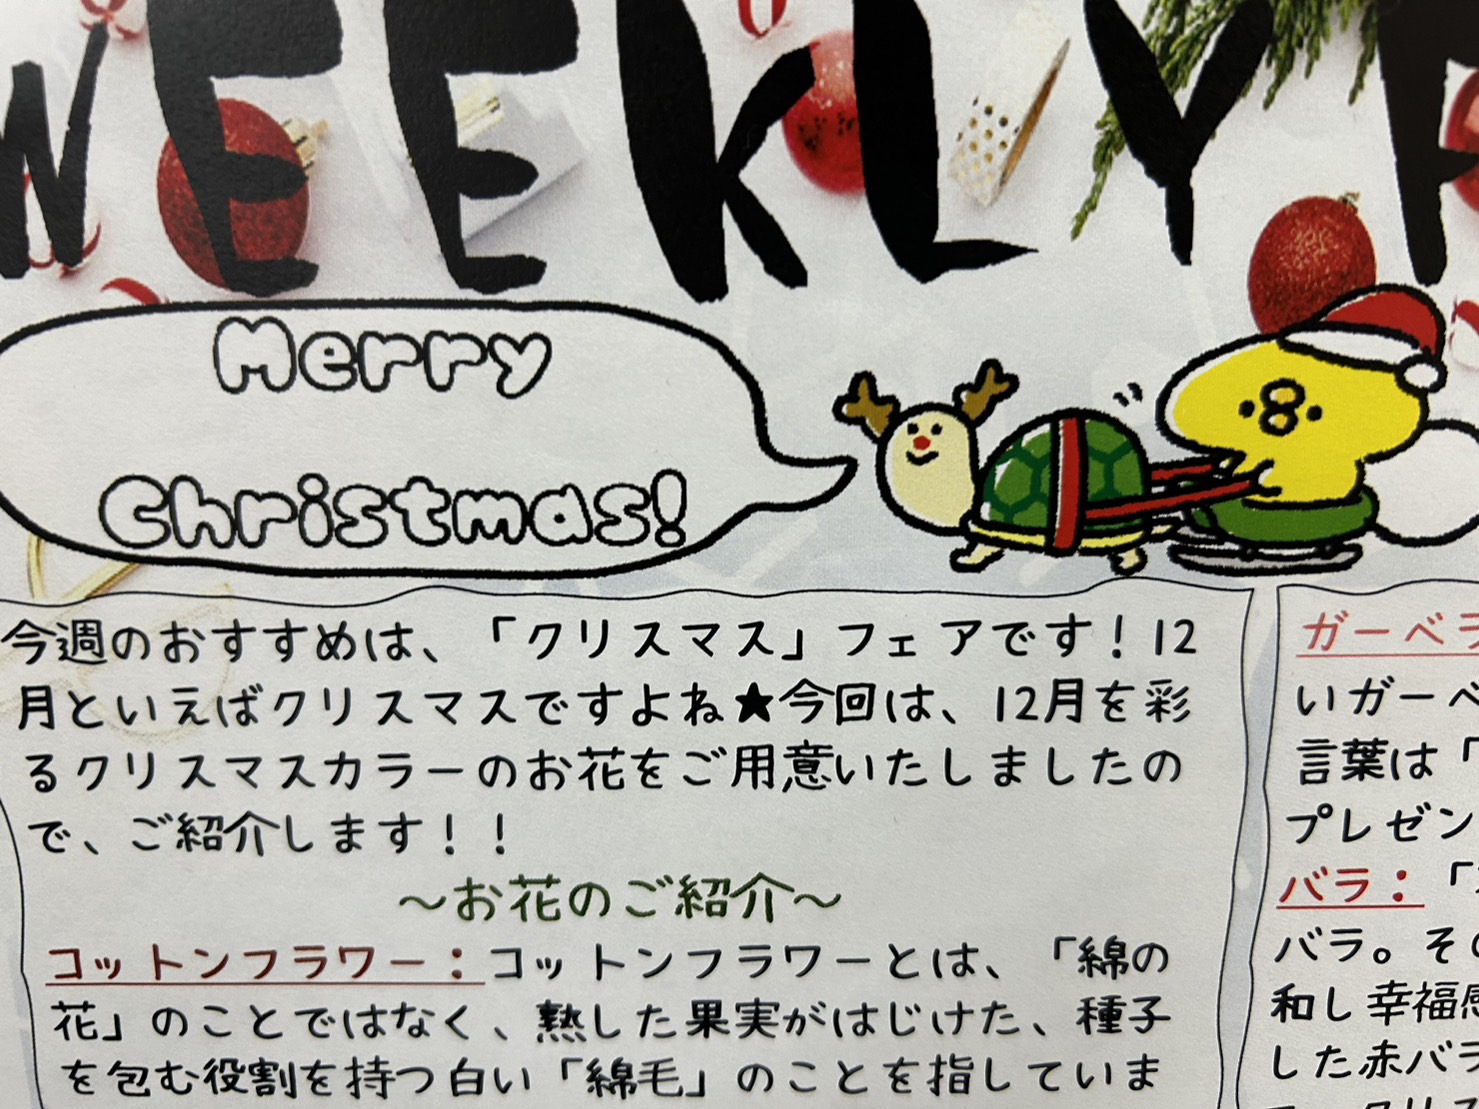 WEEKLY F
Merry
Christmas!
今週のおすすめは、「クリスマス」フェアです！12
月といえばクリスマスですよね★今回は、12月を彩
るクリスマスカラーのお花をご用意いたしましたの
で、ご紹介します！！
～お花のご紹介～
コットンフラワー：コットンフラワーとは、「綿の
花」のことではなく、熟した果実がはじけた、種子
を包む役割を持つ白い「綿毛」のことを指していま
ガーベラ
いガーベ
言葉は「
プレゼン
バラ：「
バラ。その
和し幸福感
した赤バラ